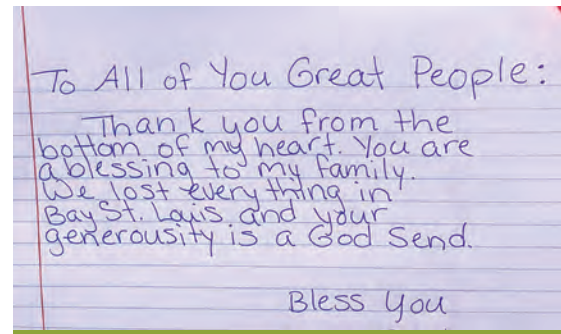 To All of You Great People:
Thank you from the
bottom of my heart. You are
a blessing to my family.
We lost everything in
Bay St. Louis and your
generousity is a God Send.
Bless You